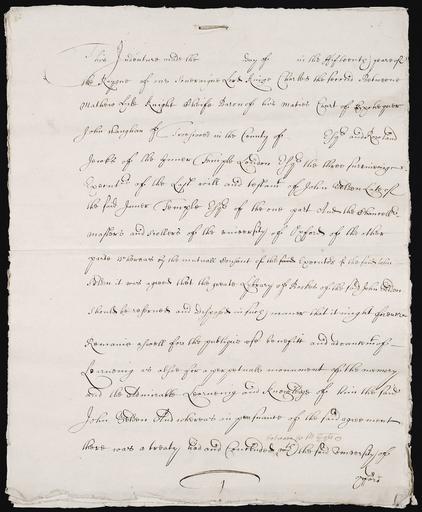 This Indenture made the day of in the fifteenth yeare of
the Raigne of our Soveraigne Lord King Charles the second Betweene
Mathew Hale Knight Cheife Baron of his Maties Court of Exchequer
John Vaughan of in the County of Esqr and Rowland
Jewks of the Inner Temple London Esqr the three surviveing
Executrs of the last will and testamt of John Selden Late of
the said Inner Temple Esqr of the one part And the Chancellr
Masters and Scollers of the university of Oxford of the other
parte Whereas by the mutuall Consent of the said Executrs & the said
it was agreed that the greate Library of Bookes of the said John Selden
should be reserved and disposed in such manner that it might
Remaine aswell for the publique use benefitt and advancemt of
Learneing as alsoe for a perpetuall monument of the memory
and the Admirable Learneing and Knowledge of him the said
John Selden And whereas in pursuance of the said agreement
between
there was a treaty had and Concluded the said university of
Oxford
1